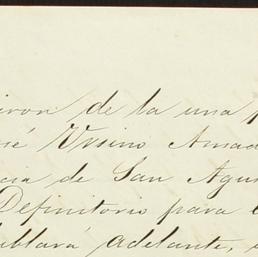 de la una
Ursino Amad
cia de San Agus
Definitorio para
blará adelante,